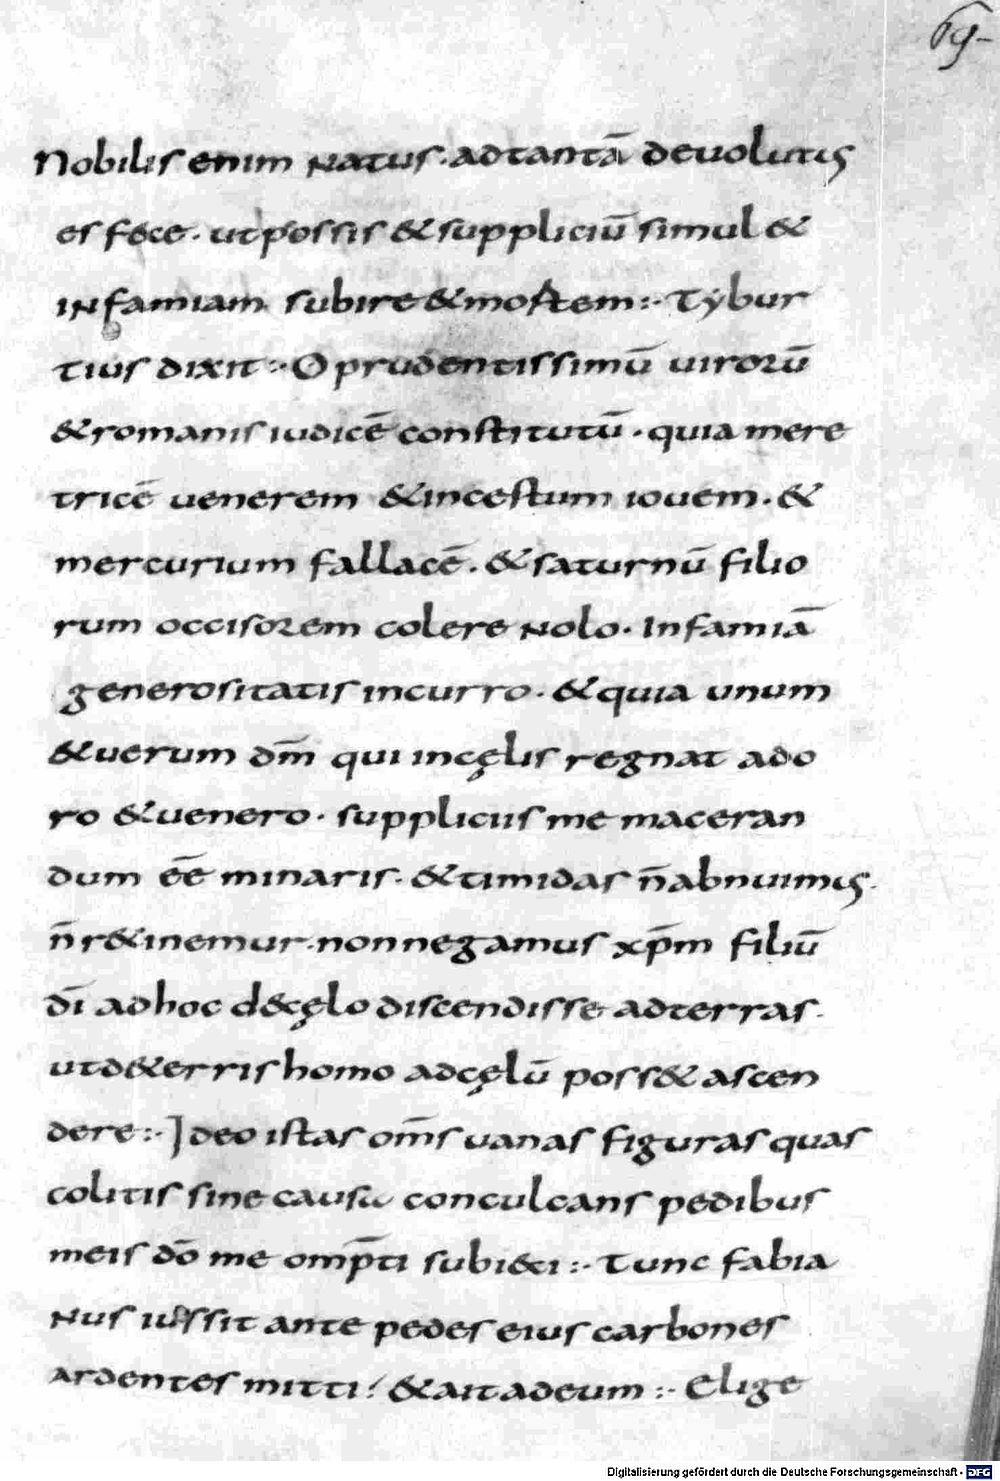 69
Nobilis enim natus. ad tantā devolutus
es fece. ut possis & suppliciū simul &
infamiam subire & mortem :· Tybur
tius dixit :· O prudentissimū virorū
& romanis iudicē constitutū. quia mere
tricē venerem & incestum iovem. &
mercurium fallacē. & saturnū filio
rum occisorem colere nolo. Infamiā
generositatis incurro. & quia unum
& verum dm̄ qui in cęlis regnat ado
ro & venero. suppliciis me maceran
dum eē minaris. & timidas n̄ abnuimus.
n̄ r&inemur. non negamus xp̄m filiū
dī ad hoc d& cęlo discendisse ad terras.
ut d& erris homo ad cęlū poss& ascen
dere :· Ideo istas om̄s vanas figuras quas
colitis sine causa conculcans pedibus
meis dō me omp̄ti subieci :· Tunc fabia
nus iussit ante pedes eius carbones
ardentes mitti. & ait ad eum :· Elige
Digitalisierung gefördert durch die Deutsche Forschungsgemeinschaft - DFG